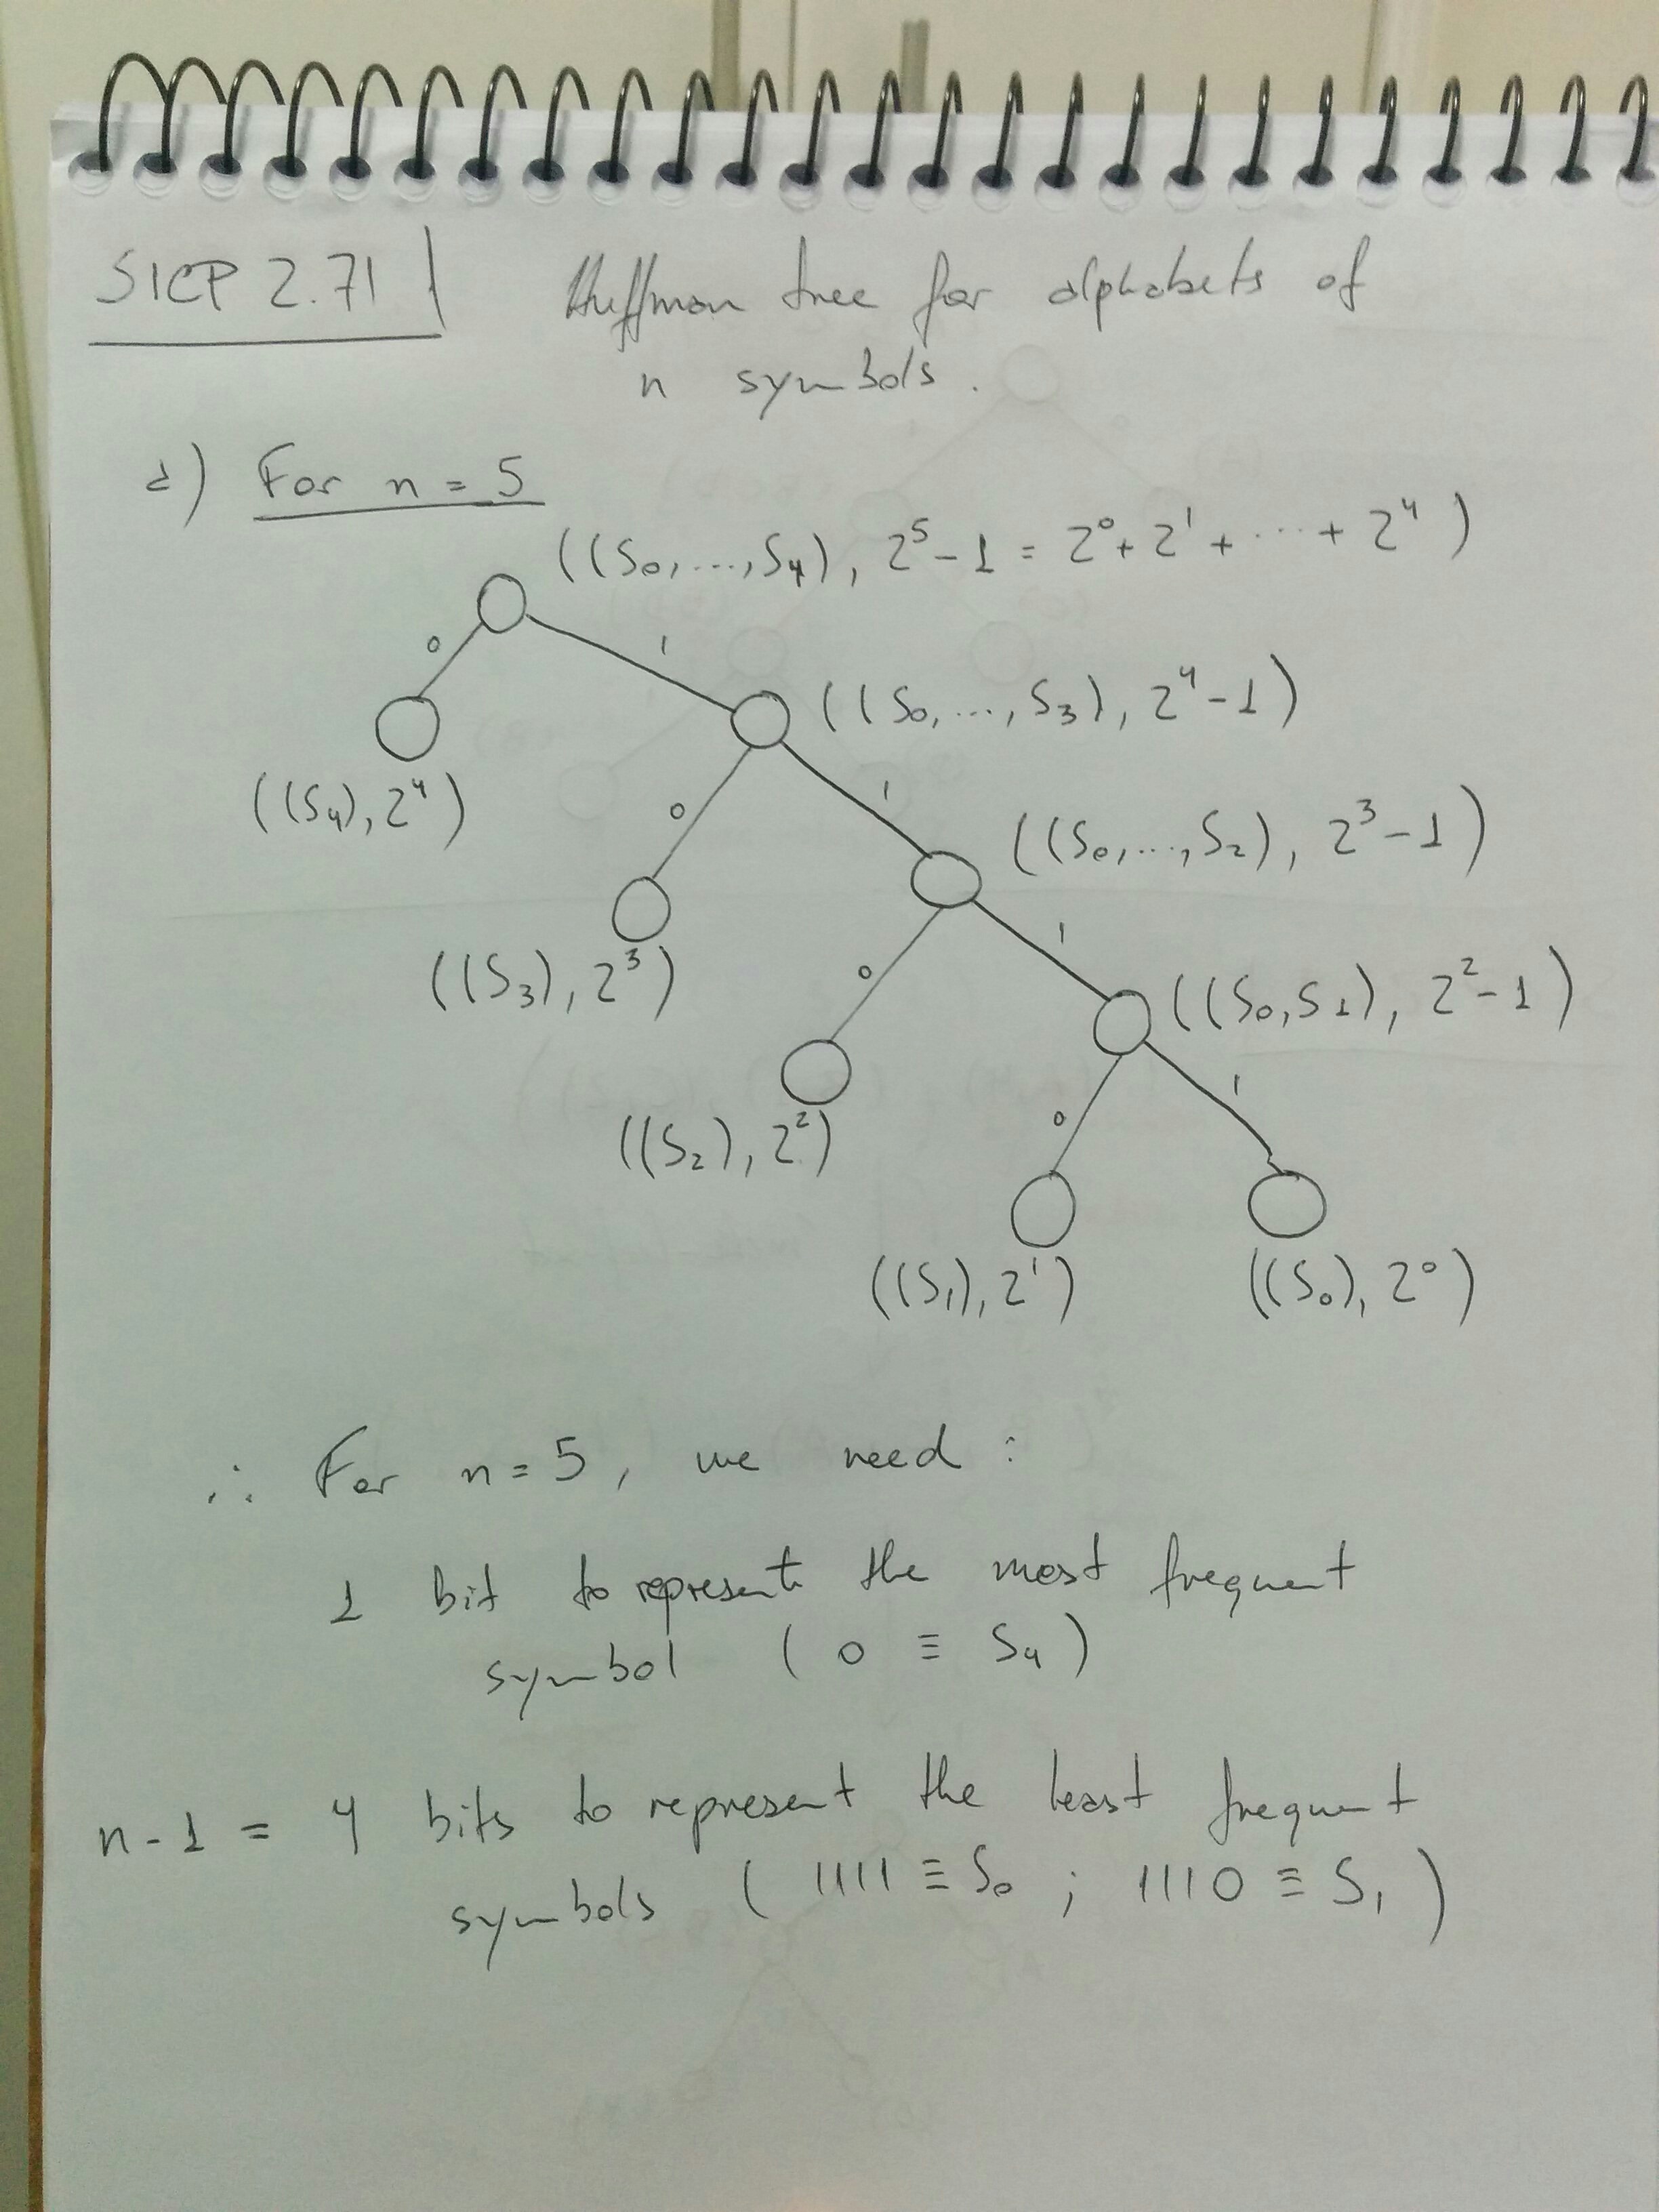 SICP 2.71 Huffman tree for alphabets of
n symbols.
a) For n = 5
((S₀,...,S₄), 2⁵-1 = 2⁰+2¹+···+2⁴)
0 1
((S₀,...,S₃), 2⁴-1)
((S₄), 2⁴)
0 1
((S₀,...,S₂), 2³-1)
((S₃), 2³)
0 1
((S₀,S₁), 2²-1)
((S₂), 2²)
0 1
((S₁), 2¹) ((S₀), 2⁰)
∴ For n=5, we need:
1 bit to represent the most frequent
symbol (0 ≡ S₄)
n-1 = 4 bits to represent the least frequent
symbols (1111 ≡ S₀ ; 1110 ≡ S₁)